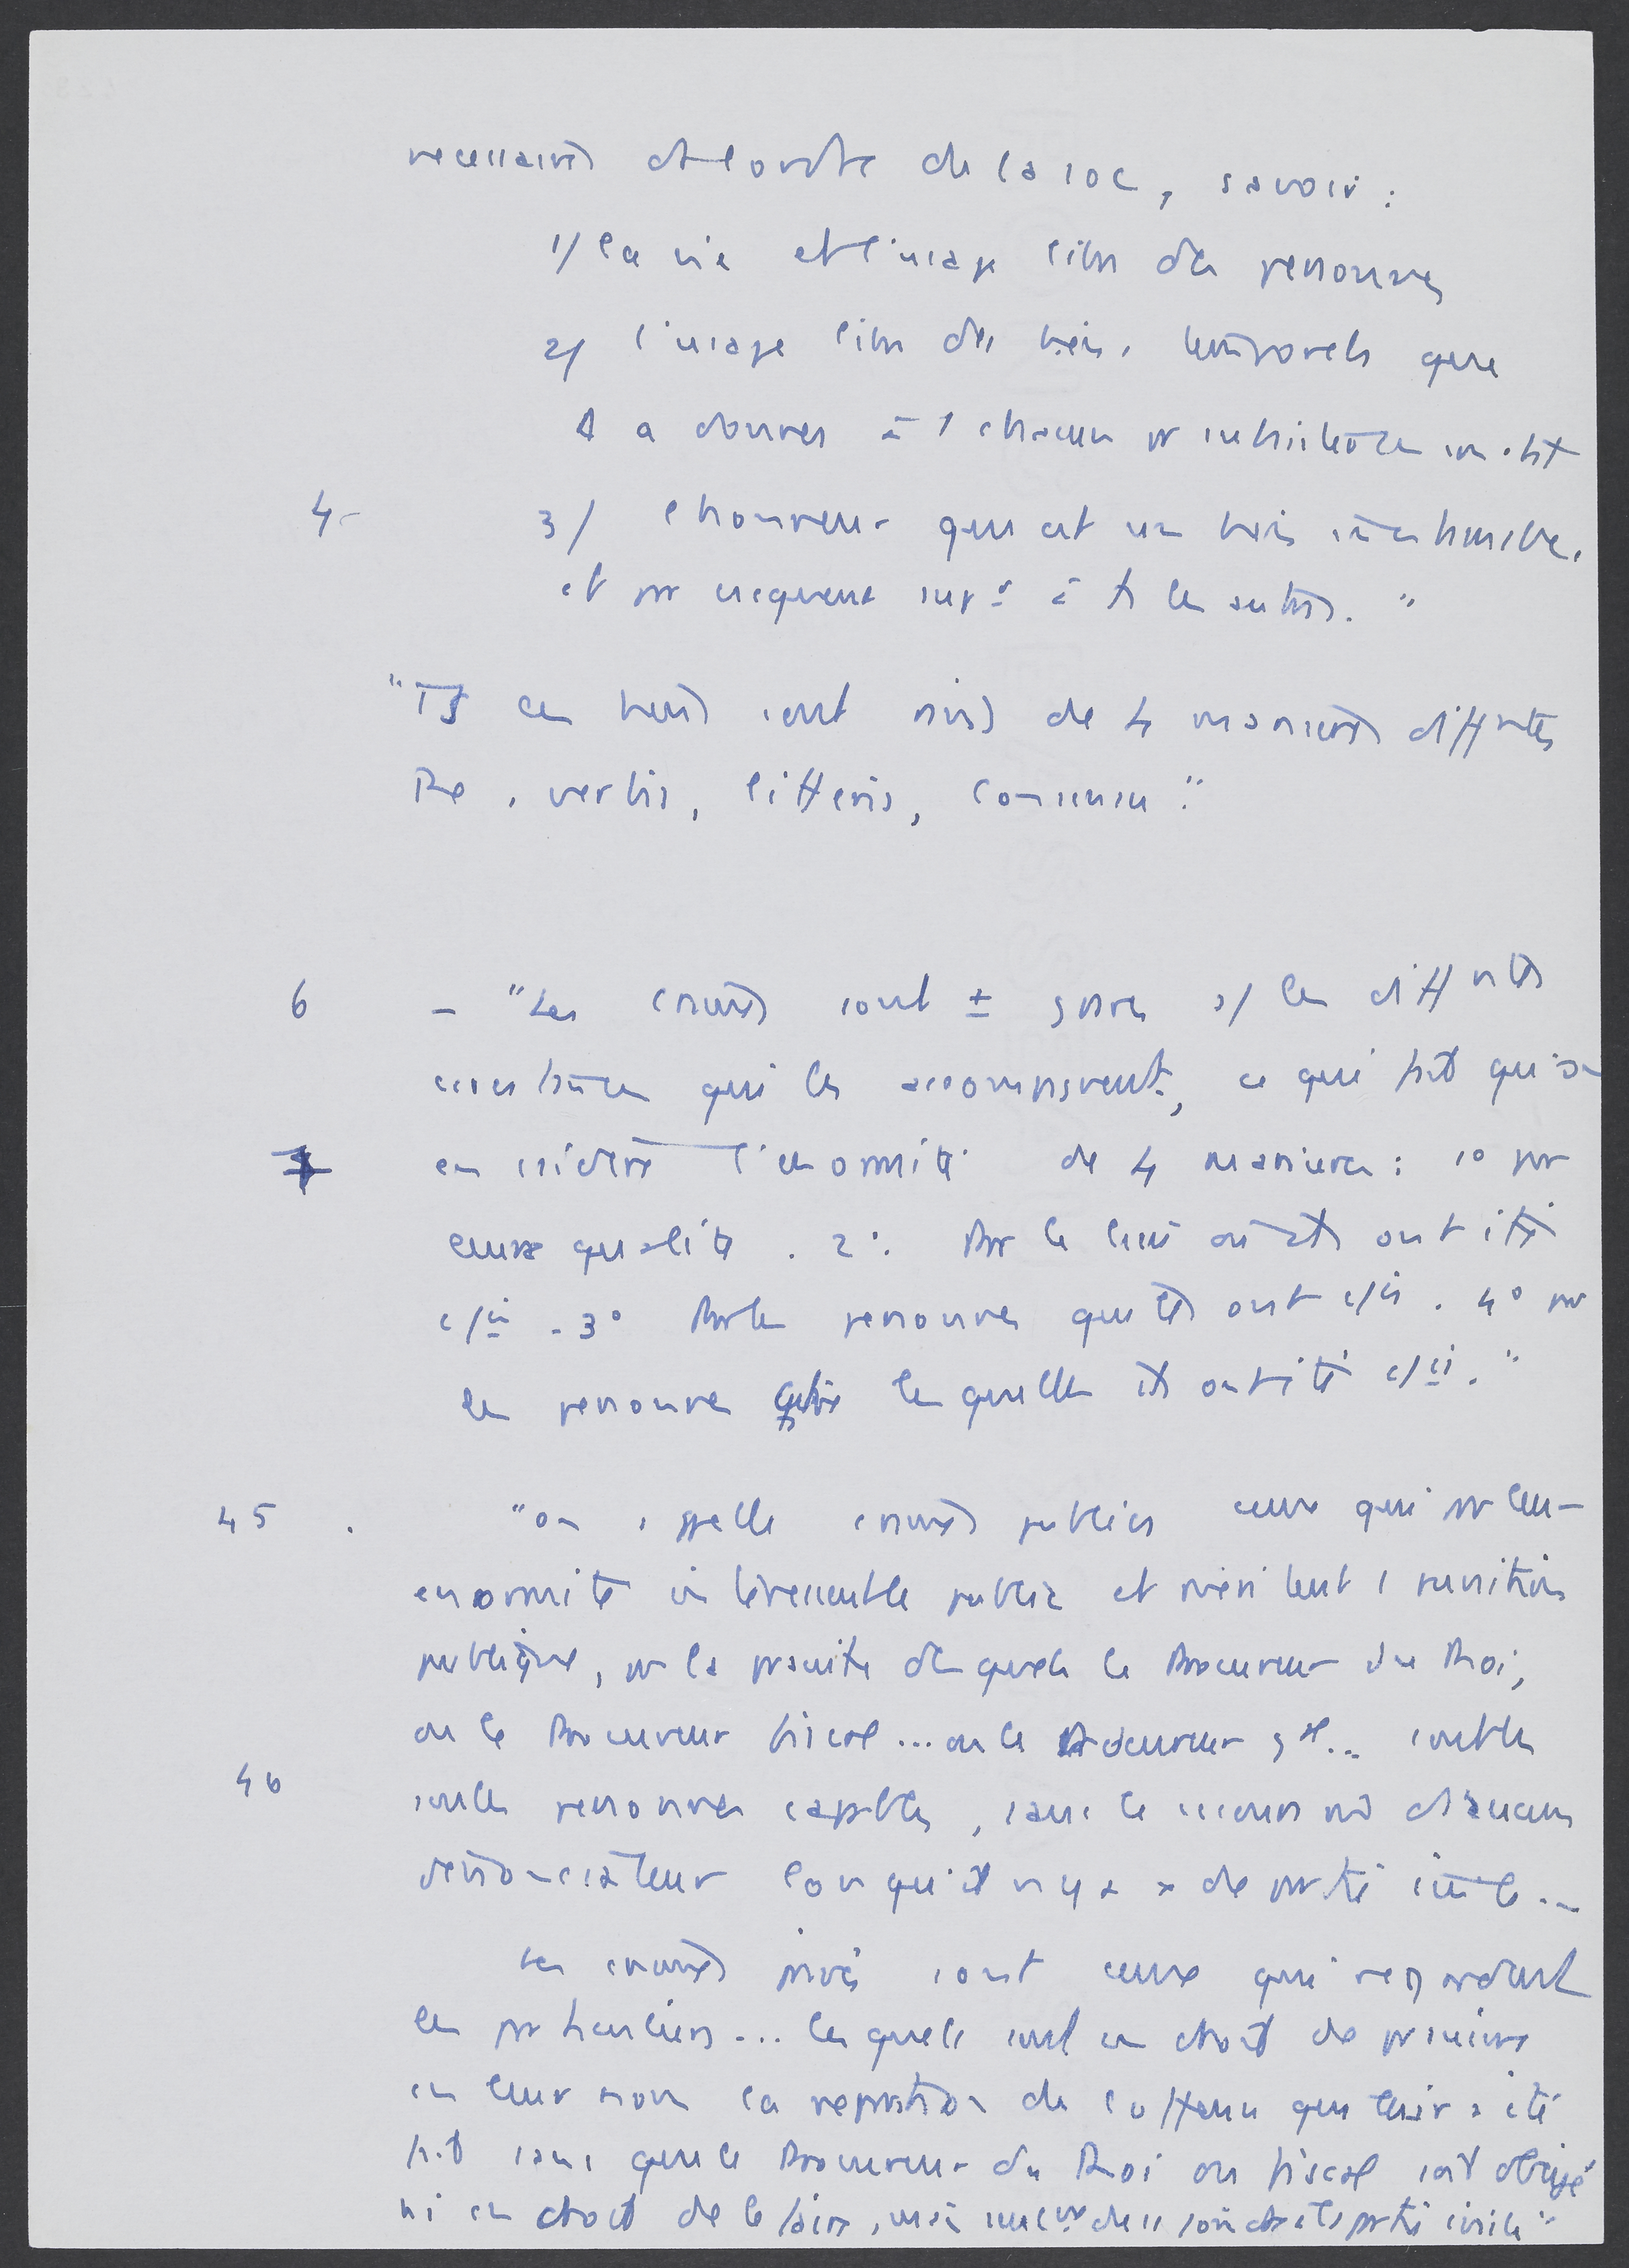 necessaires et l'ordre de la soc, savoir :
1/ la vie et l'usage libre des personnes
2/ l'usage libre des biens temporels que
a donnés à chacun pr subsistance
4- 3/ l'honneur qui est un bien
et par csequent supr à ts les autres. "
"Ts ces biens sont privés de 4 manières diffrentes
Re, verbis, litteris, consensu".
6 - "Les crimes sont ± graves s/ les diffrentes
circonstances qui les accompagnent, ce qui fait qu'on
en csidère l'enormité de 4 manieres : 1° par
leurs qualités. 2°. Par le lieu où ils ont été
c/is. 3° Par les personnes qui les ont c/is. 4° par
les personnes contre lesquelles ils ont été c/is."
45. "on appelle crimes publics ceux qui par leur
enormité interessent le public et méritent 1 punition
publique, pr la poursuite desquels le Procureur du Roi,
ou le Procureur fiscal... ou le Procureur gal... sont les
46 seules personnes capables, sans le secours d'aucun
dénonciateur lorsqu'il n'y a x de partie civile...
Les crimes privés sont ceux qui regardent
les particuliers... lesquels sont en droit de poursuivre
en leur nom la reparation de l'offense qui leur a été
fait sans que le Procureur du Roi ou fiscal soit obligé
ni en droit de le faire, partie civile"